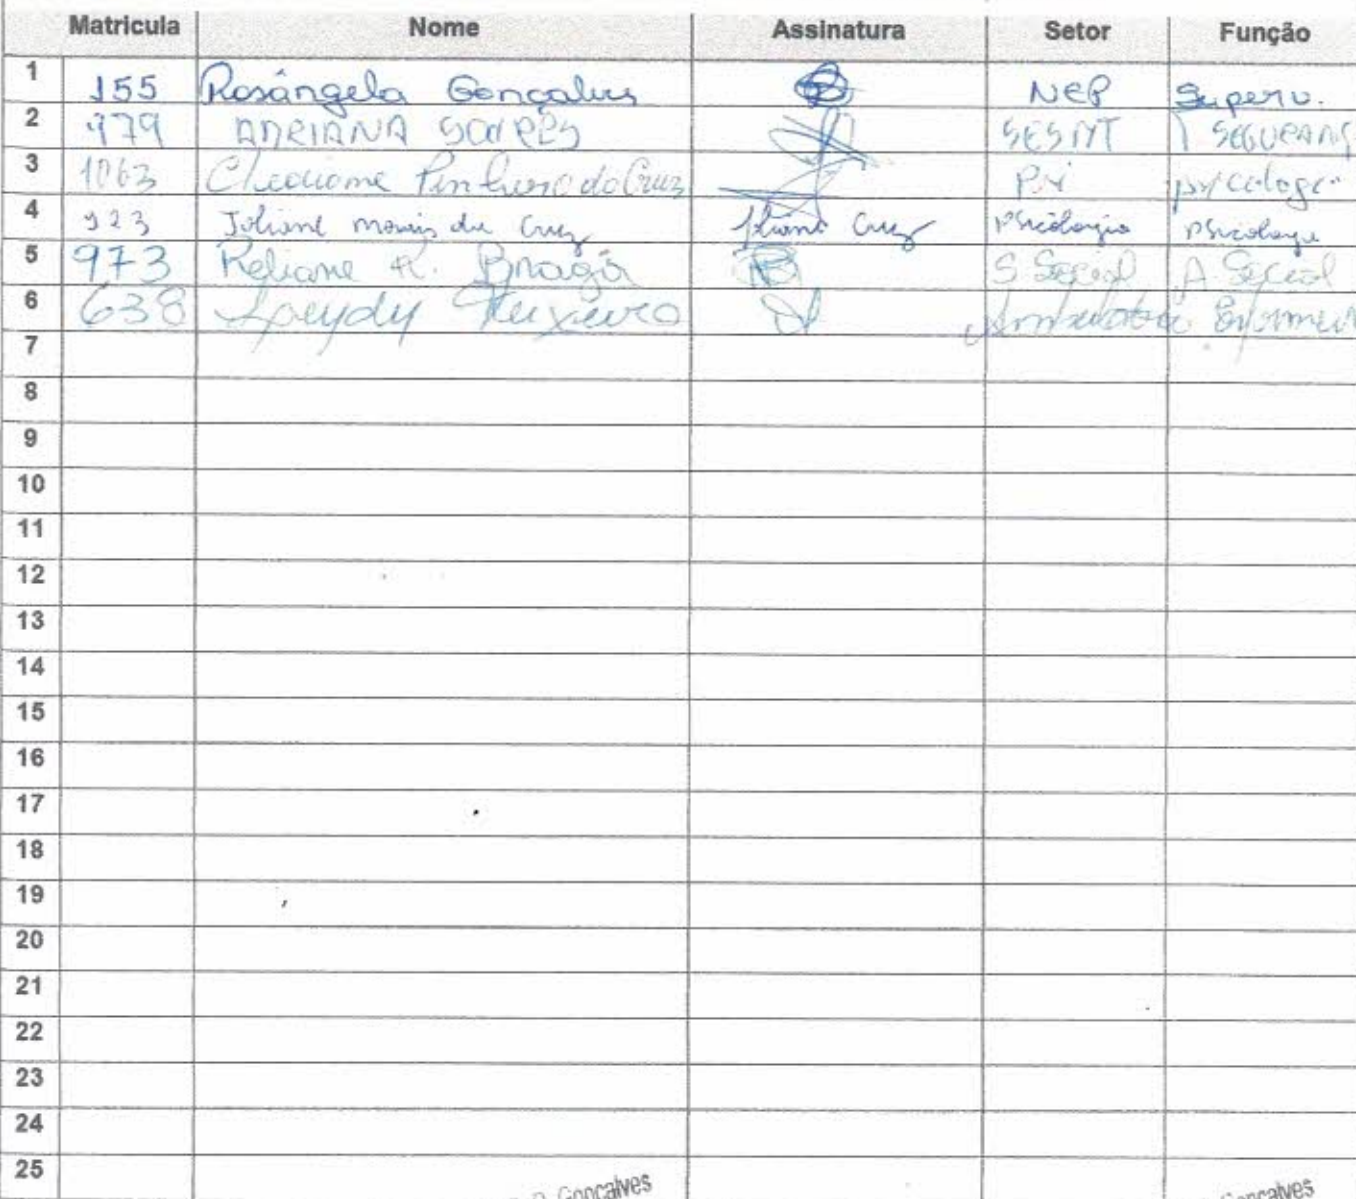 Matricula Nome Assinatura Setor Função
1 155 Rosângela Gonçalves NEP Superv.
2 979 ADRIANA SOARES SESMT T SEGURANÇ
3 1063 Pinheiro da Cruz psicologa
4 923 Joliane morais da Cruz Cruz Psicologia Psicologa
5 973 Reliane R. Braga S. Social A. Social
6 638 Teixeira
7
8
9
10
11
12
13
14
15
16
17
18
19
20
21
22
23
24
25
Gonçalves Gonçalves